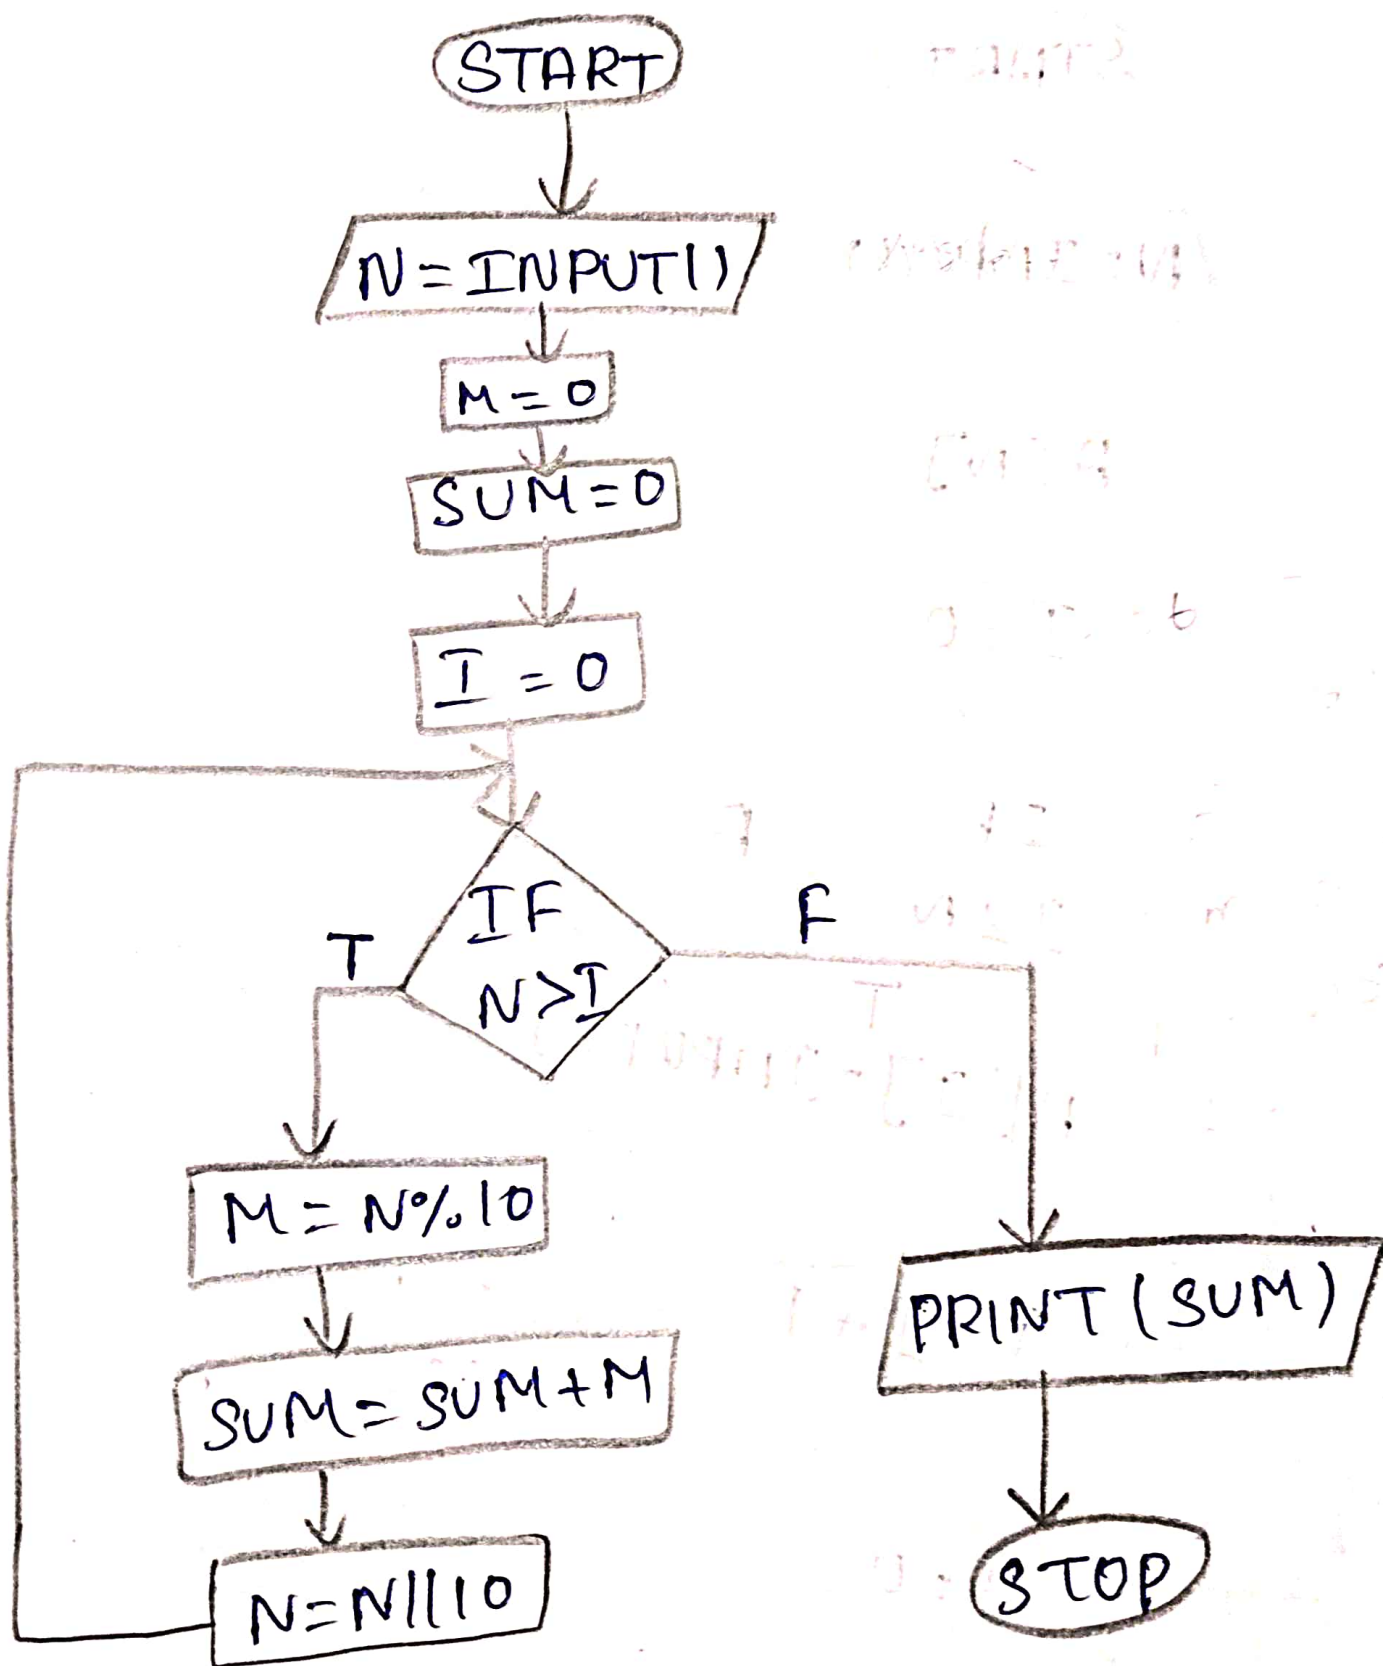 START
N=INPUT()
M=0
SUM=0
I=0
IF
N>I
T
F
M=N%10
SUM=SUM+M
N=N||10
PRINT(SUM)
STOP